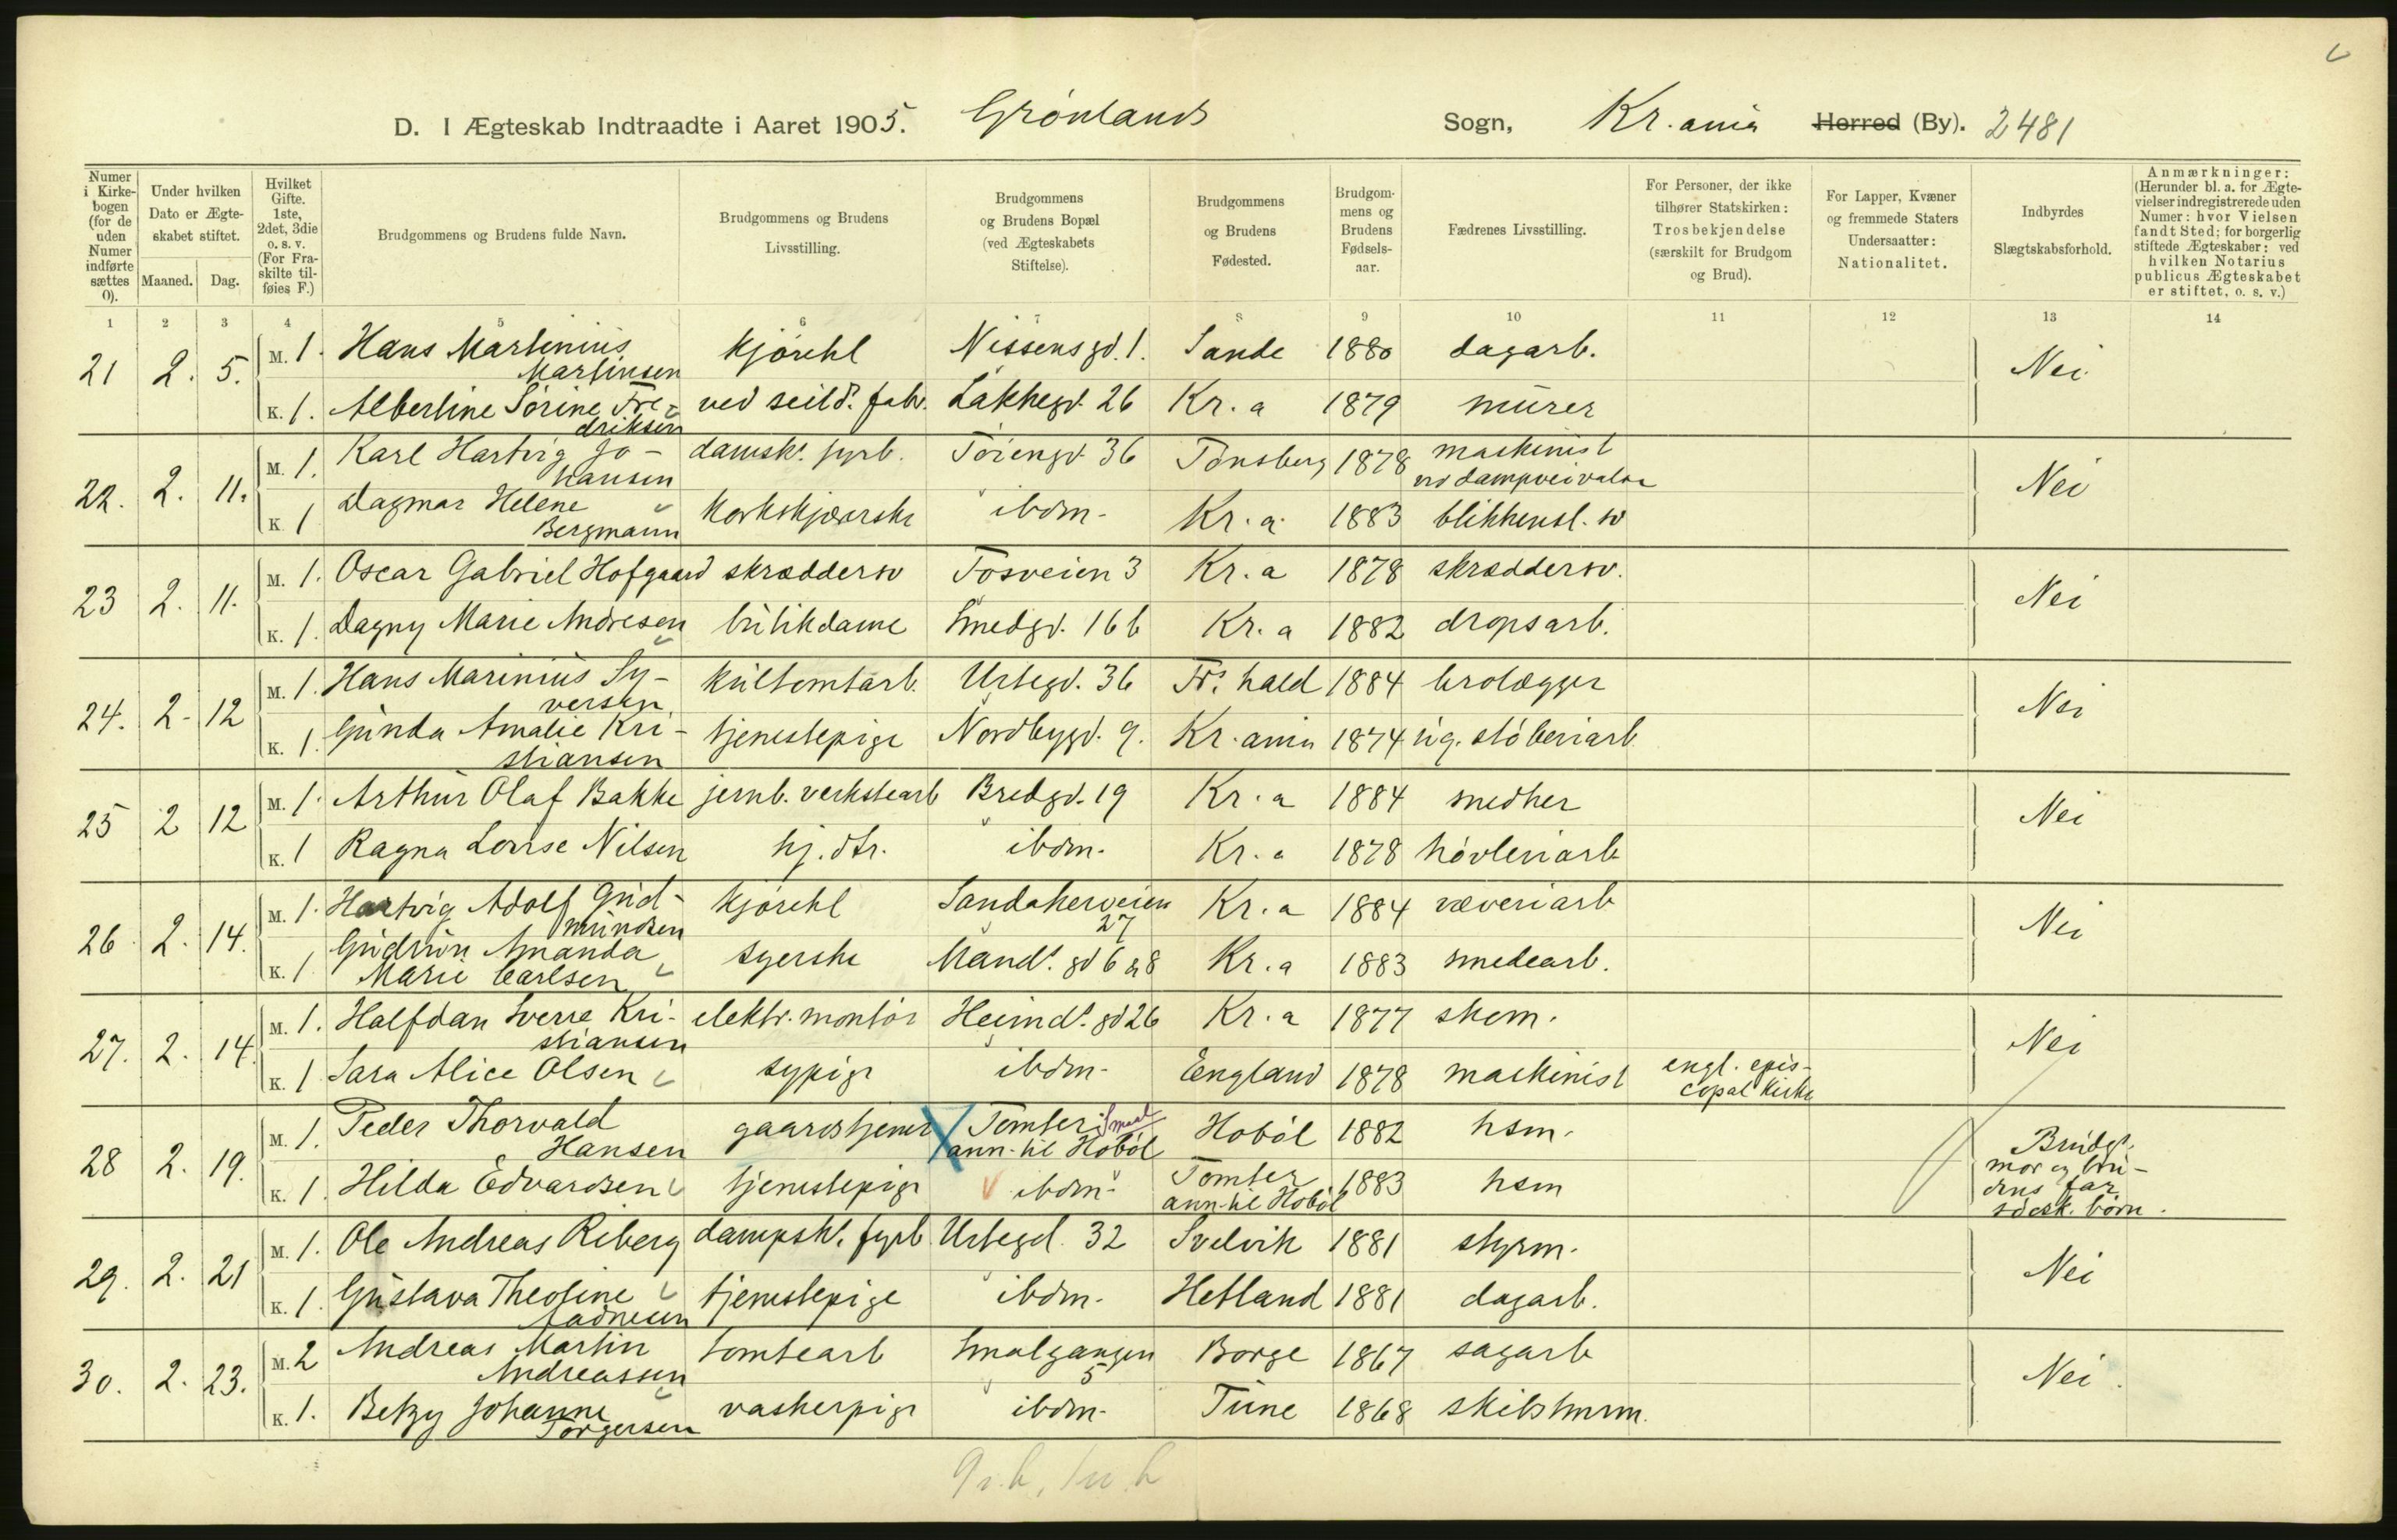 D. I Ægteskab Indtraadte i Aaret 1905. Grönlands Sogn, Kr.ania Herred (By). 2481
Numer i Kirkebogen (for de uden Numer indførte sættes 0).
Under hvilken Dato er Ægteskabet stiftet.
Maaned. Dag.
Hvilket Gifte. 1ste, 2det, 3die o. s. v. (For Fraskilte tilføies F.)
Brudgommens og Brudens fulde Navn.
Brudgommens og Brudens Livsstilling.
Brudgommens og Brudens Bopæl (ved Ægteskabets Stiftelse).
Brudgommens og Brudens Fødested.
Brudgommens og Brudens Fødselsaar.
Fædrenes Livsstilling.
For Personer, der ikke tilhører Statskirken: Trosbekjendelse (særskilt for Brudgom og Brud).
For Lapper, Kvæner og fremmede Staters Undersaatter: Nationalitet.
Indbyrdes Slægtskabsforhold.
Anmærkninger: (Herunder bl. a. for Ægtevielser indregistrerede uden Numer: hvor Vielsen fandt Sted; for borgerlig stiftede Ægteskaber: ved hvilken Notarius publicus Ægteskabet er stiftet, o. s. v.)
1 2 3 4 5 6 7 8 9 10 11 12 13 14
21 2. 5. M. 1. Hans Martinius Martinsen kjørekl Nissensgd. 1. Sande 1880 dagarb. Nei
K. 1. Albertine Sørine Fredriksen ved seild. fabr. Lakkegd. 26 Kr.a 1879 murer
22. 2. 11. M. 1. Karl Hartvig Johansen dampsk. fyrb. Töiengd. 36 Tönsberg 1878 maskinist ved dampveivalse Nei
K. 1 Dagmar Helene Bergmann korkskjærerske ibdm. Kr.a 1883 blikkensl. sv
23 2. 11. M. 1. Oscar Gabriel Hofgaard skræddersv Fosveien 3 Kr.a 1878 skræddersv. Nei
K. 1. Dagny Marie Andresen butikdame Smedgd. 16 b Kr.a 1882 dropsarb.
24. 2. 12 M. 1. Hans Marinius Syversen kultomtarb. Urtegd. 36 Fr.hald 1884 brolægger Nei
K. 1. Gunda Amalie Kristiansen tjenestepige Nordbygd. 9. Kr.ania 1874 ug. støberiarb
25 2 12 M. 1. Arthur Olaf Bakke jernb. verkstearb Bredgd. 19 Kr.a 1884 snedker Nei
K. 1 Ragna Lovise Nilsen hj. dtr. ibdm. Kr.a 1878 høvleriarb
26 2. 14. M. 1. Hartvig Adolf Gudmundsen kjørekl Sandakerveien 27 Kr.a 1884 væveriarb Nei
K. 1 Gudrun Amanda Marie Carlsen syerske Mand. gd 6 & 8 Kr.a 1883 smedearb.
27. 2. 14. M. 1. Halfdan Sverre Kristiansen elektr. montør Heimd. gd 26 Kr.a 1877 skom. Nei
K. 1 Sara Alice Olsen sypige ibdm. England 1878 maskinist engl. episcopal kirke
28 2. 19. M. 1. Peder Thorvald Hansen gaardstjener Tomter Smaal ann. til Hobøl Hobøl 1882 hsm. Brudg. mor og brudens far södsk. börn.
K. 1. Hilda Edvardsen tjenestepige ibdm. Tomter ann. til Hobøl 1883 hsm
29. 2. 21 M. 1. Ole Andreas Riberg dampsk. fyrb Urtegd. 32 Svelvik 1881 styrm. Nei
K. 1. Gustava Theoline Aadnesen tjenestepige ibdm. Hetland 1881 dagarb.
30. 2. 23. M. 2 Andreas Martin Andreassen tomtearb Smalgangen 5 Borge 1867 sagarb Nei
K. 1. Betzy Johanne Torgersen vaskerpige ibdm. Tune 1868 skibstmrm.